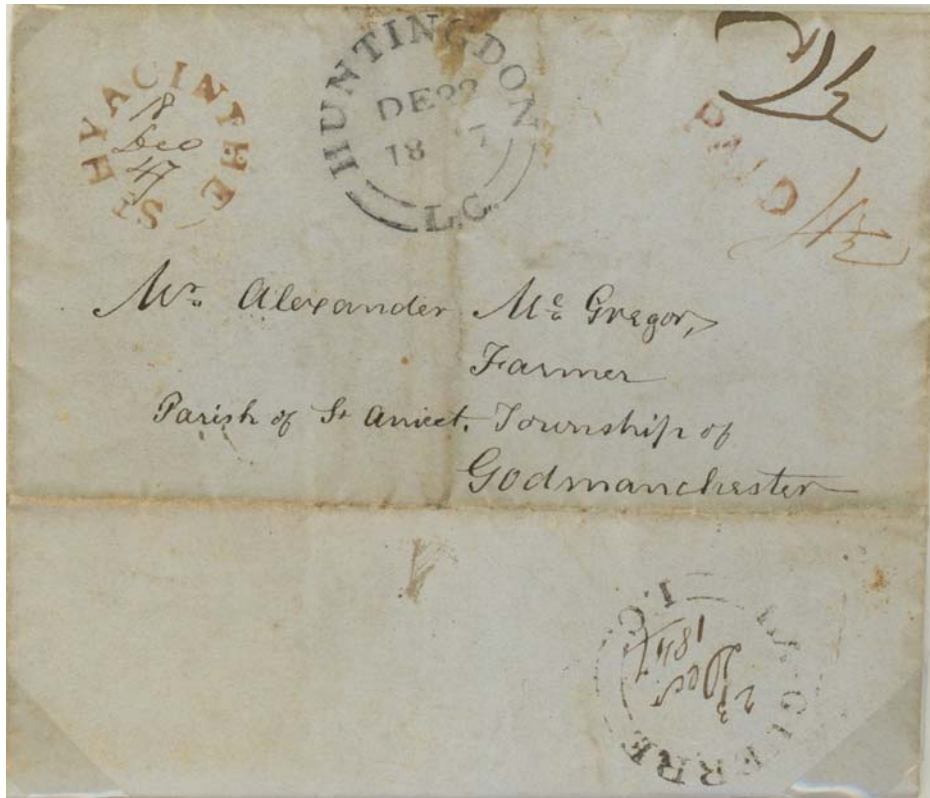 ST HYACINTHE
18
Dec
47
HUNTINGDON
DE 22
18 7
L.C.
PAID
4½
Mr. Alexander Mc Gregor,
Farmer
Parish of St Anicet. Township of
Godmanchester
L.C.
23
Dec
1847